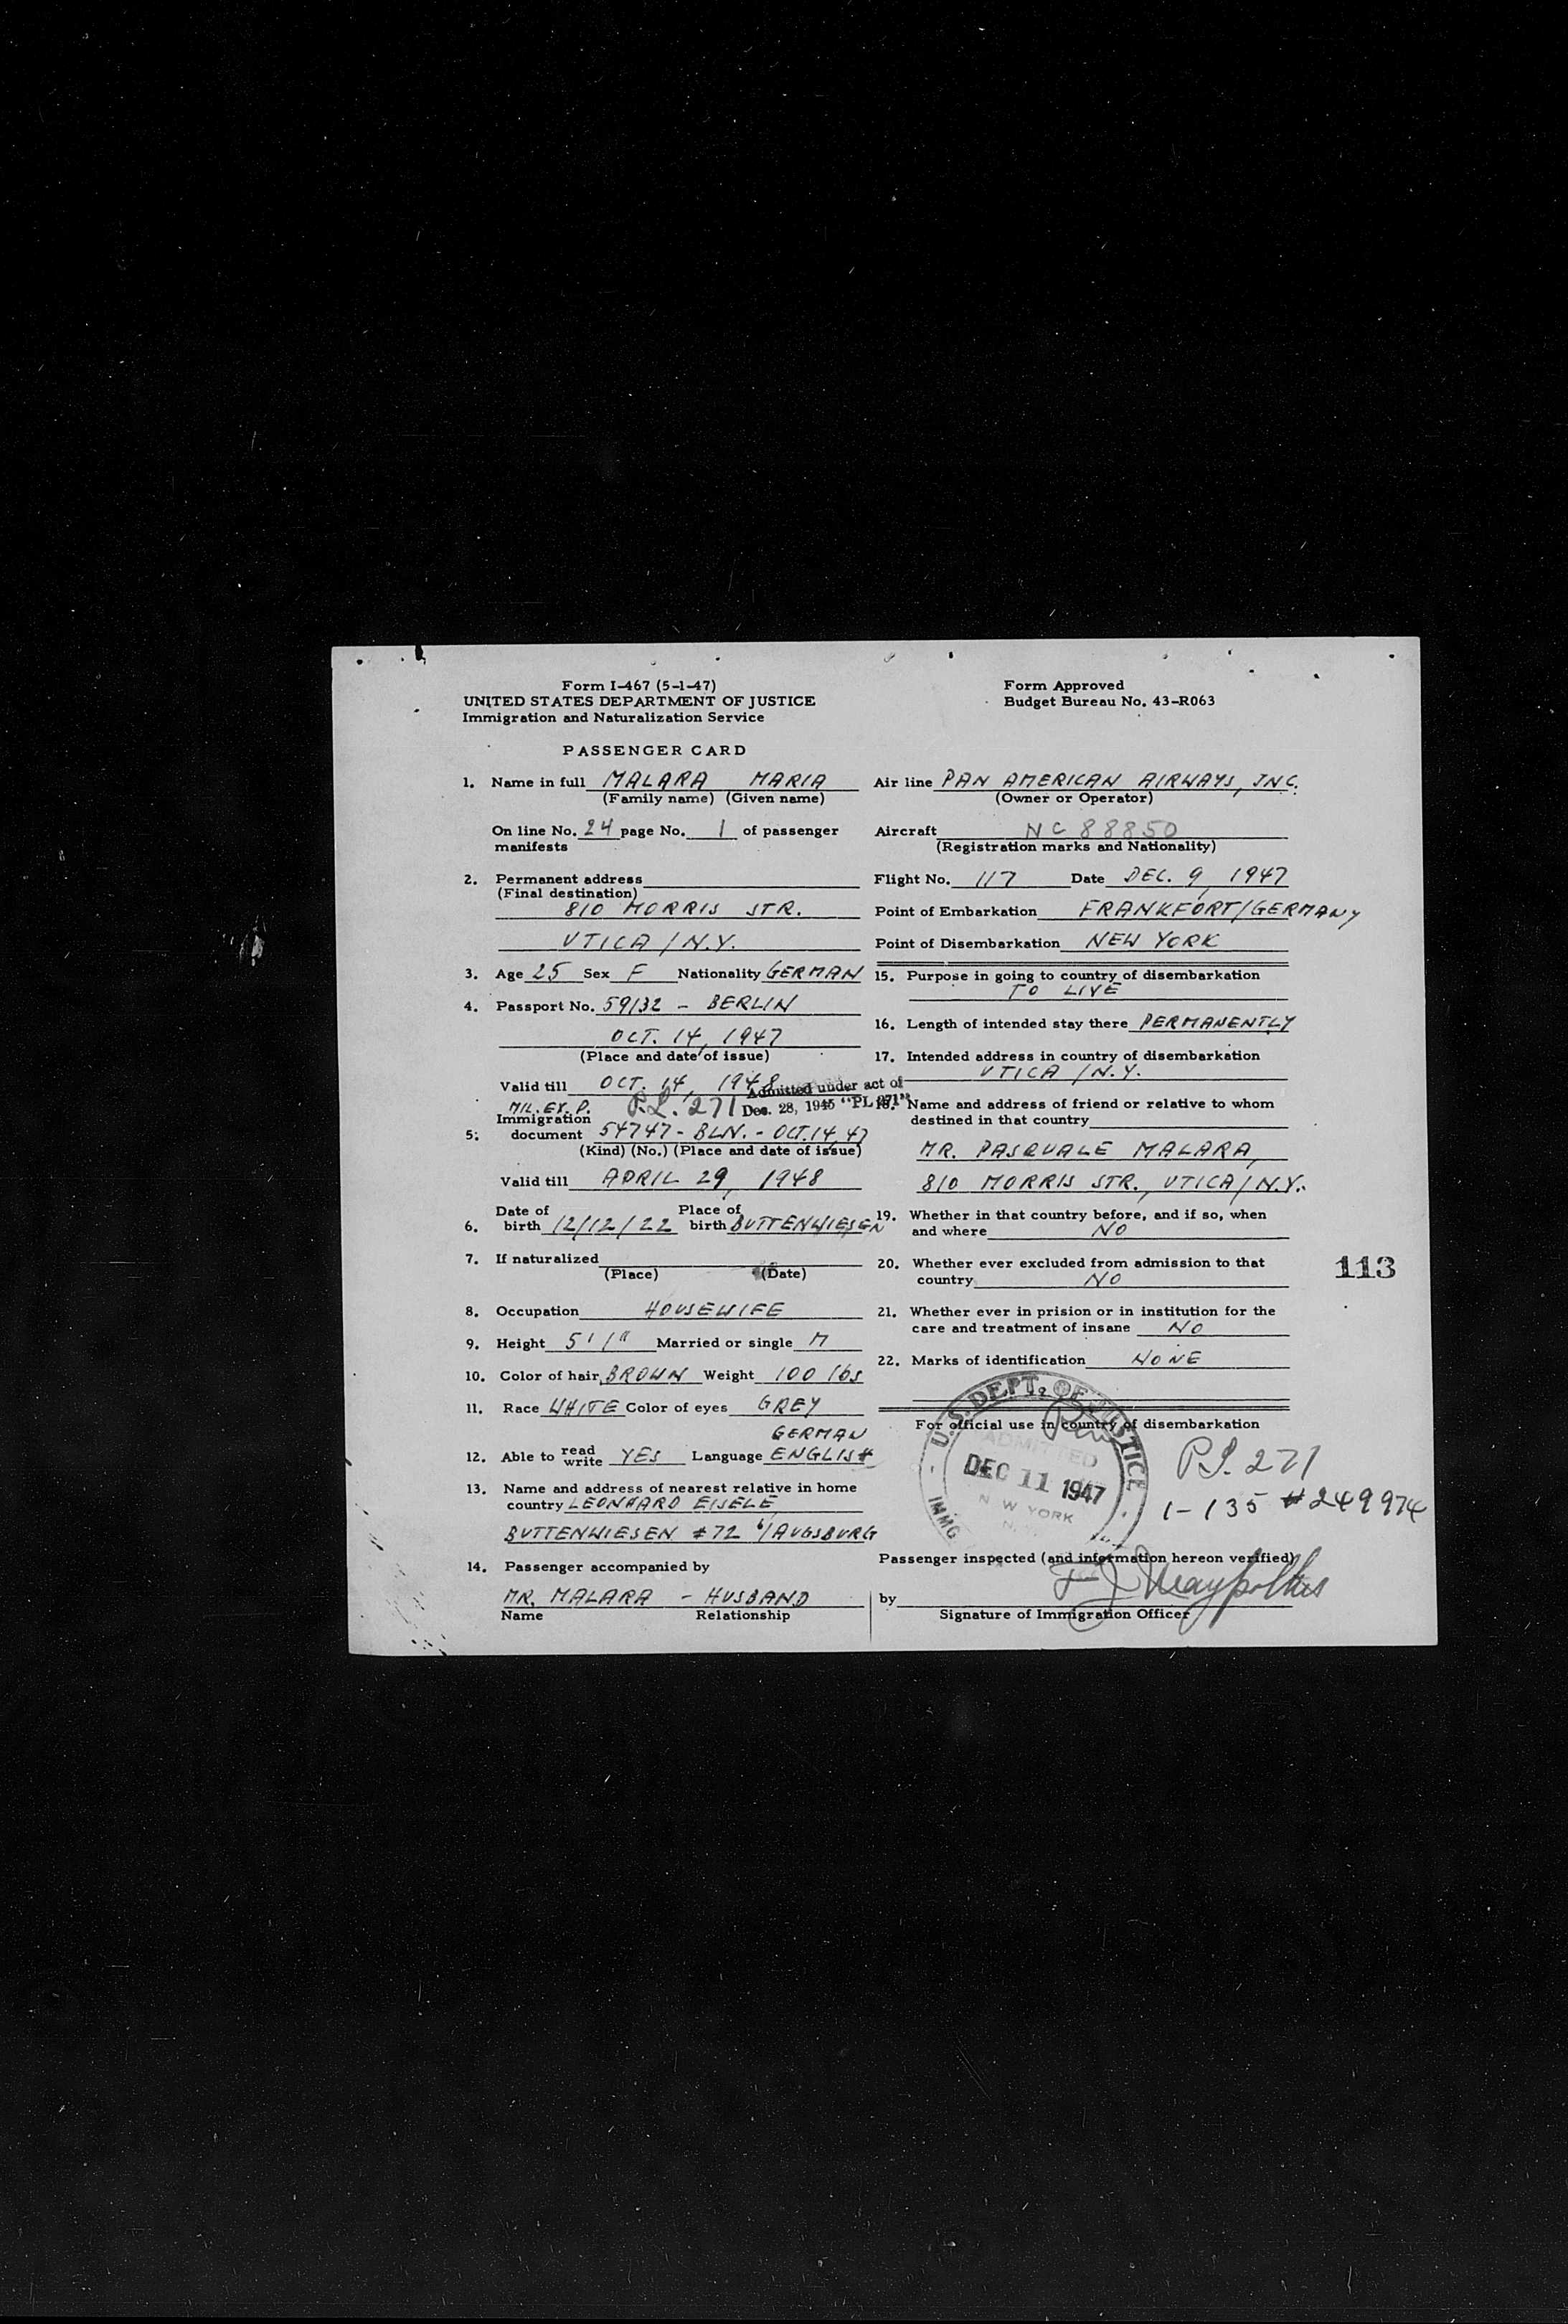 Form I-467 (5-1-47)
UNITED STATES DEPARTMENT OF JUSTICE
Immigration and Naturalization Service
Form Approved
Budget Bureau No. 43-R063
PASSENGER CARD
1. Name in full MALARA MARIA
(Family name) (Given name)
On line No. 24 page No. 1 of passenger
manifests
2. Permanent address
(Final destination)
810 MORRIS STR.
UTICA / N.Y.
3. Age 25 Sex F Nationality GERMAN
4. Passport No. 59132 - BERLIN
OCT. 14, 1947
(Place and date of issue)
Valid till OCT. 14, 1948
Admitted under act of
Dec. 28, 1945 "PL 271"
MIL. EX. P. P.L. 271
Immigration
5. document 54747 - BLN. - OCT. 14, 47
(Kind) (No.) (Place and date of issue)
Valid till APRIL 29, 1948
6. Date of birth 12/12/22 Place of birth BUTTENWIESEN
7. If naturalized
(Place) (Date)
8. Occupation HOUSEWIFE
9. Height 5' 1" Married or single M
10. Color of hair BROWN Weight 100 lbs
11. Race WHITE Color of eyes GREY
GERMAN
12. Able to read write YES Language ENGLISH
13. Name and address of nearest relative in home
country LEONHARD EISELE
BUTTENWIESEN #72 b/AUGSBURG
14. Passenger accompanied by
MR. MALARA - HUSBAND
Name Relationship
Air line PAN AMERICAN AIRWAYS, INC.
(Owner or Operator)
Aircraft NC 88850
(Registration marks and Nationality)
Flight No. 117 Date DEC. 9, 1947
Point of Embarkation FRANKFORT/GERMANY
Point of Disembarkation NEW YORK
15. Purpose in going to country of disembarkation
TO LIVE
16. Length of intended stay there PERMANENTLY
17. Intended address in country of disembarkation
UTICA / N.Y.
18. Name and address of friend or relative to whom
destined in that country
MR. PASQUALE MALARA,
810 MORRIS STR., UTICA / N.Y.
19. Whether in that country before, and if so, when
and where NO
20. Whether ever excluded from admission to that
country NO
113
21. Whether ever in prision or in institution for the
care and treatment of insane NO
22. Marks of identification NONE
For official use in country of disembarkation
U.S. DEPT. OF JUSTICE
ADMITTED
DEC 11 1947
NEW YORK
N.Y.
IMMG
P.L. 271
1-135 #249974
Passenger inspected (and information hereon verified)
by
Signature of Immigration Officer